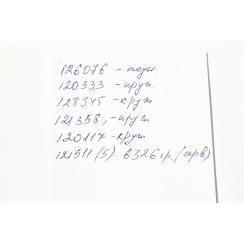 126076 - подн.
120333 - круж.
128345 - круж
121358, - круж
120117 - круж
121511 (5) 6326гр. (сорв)